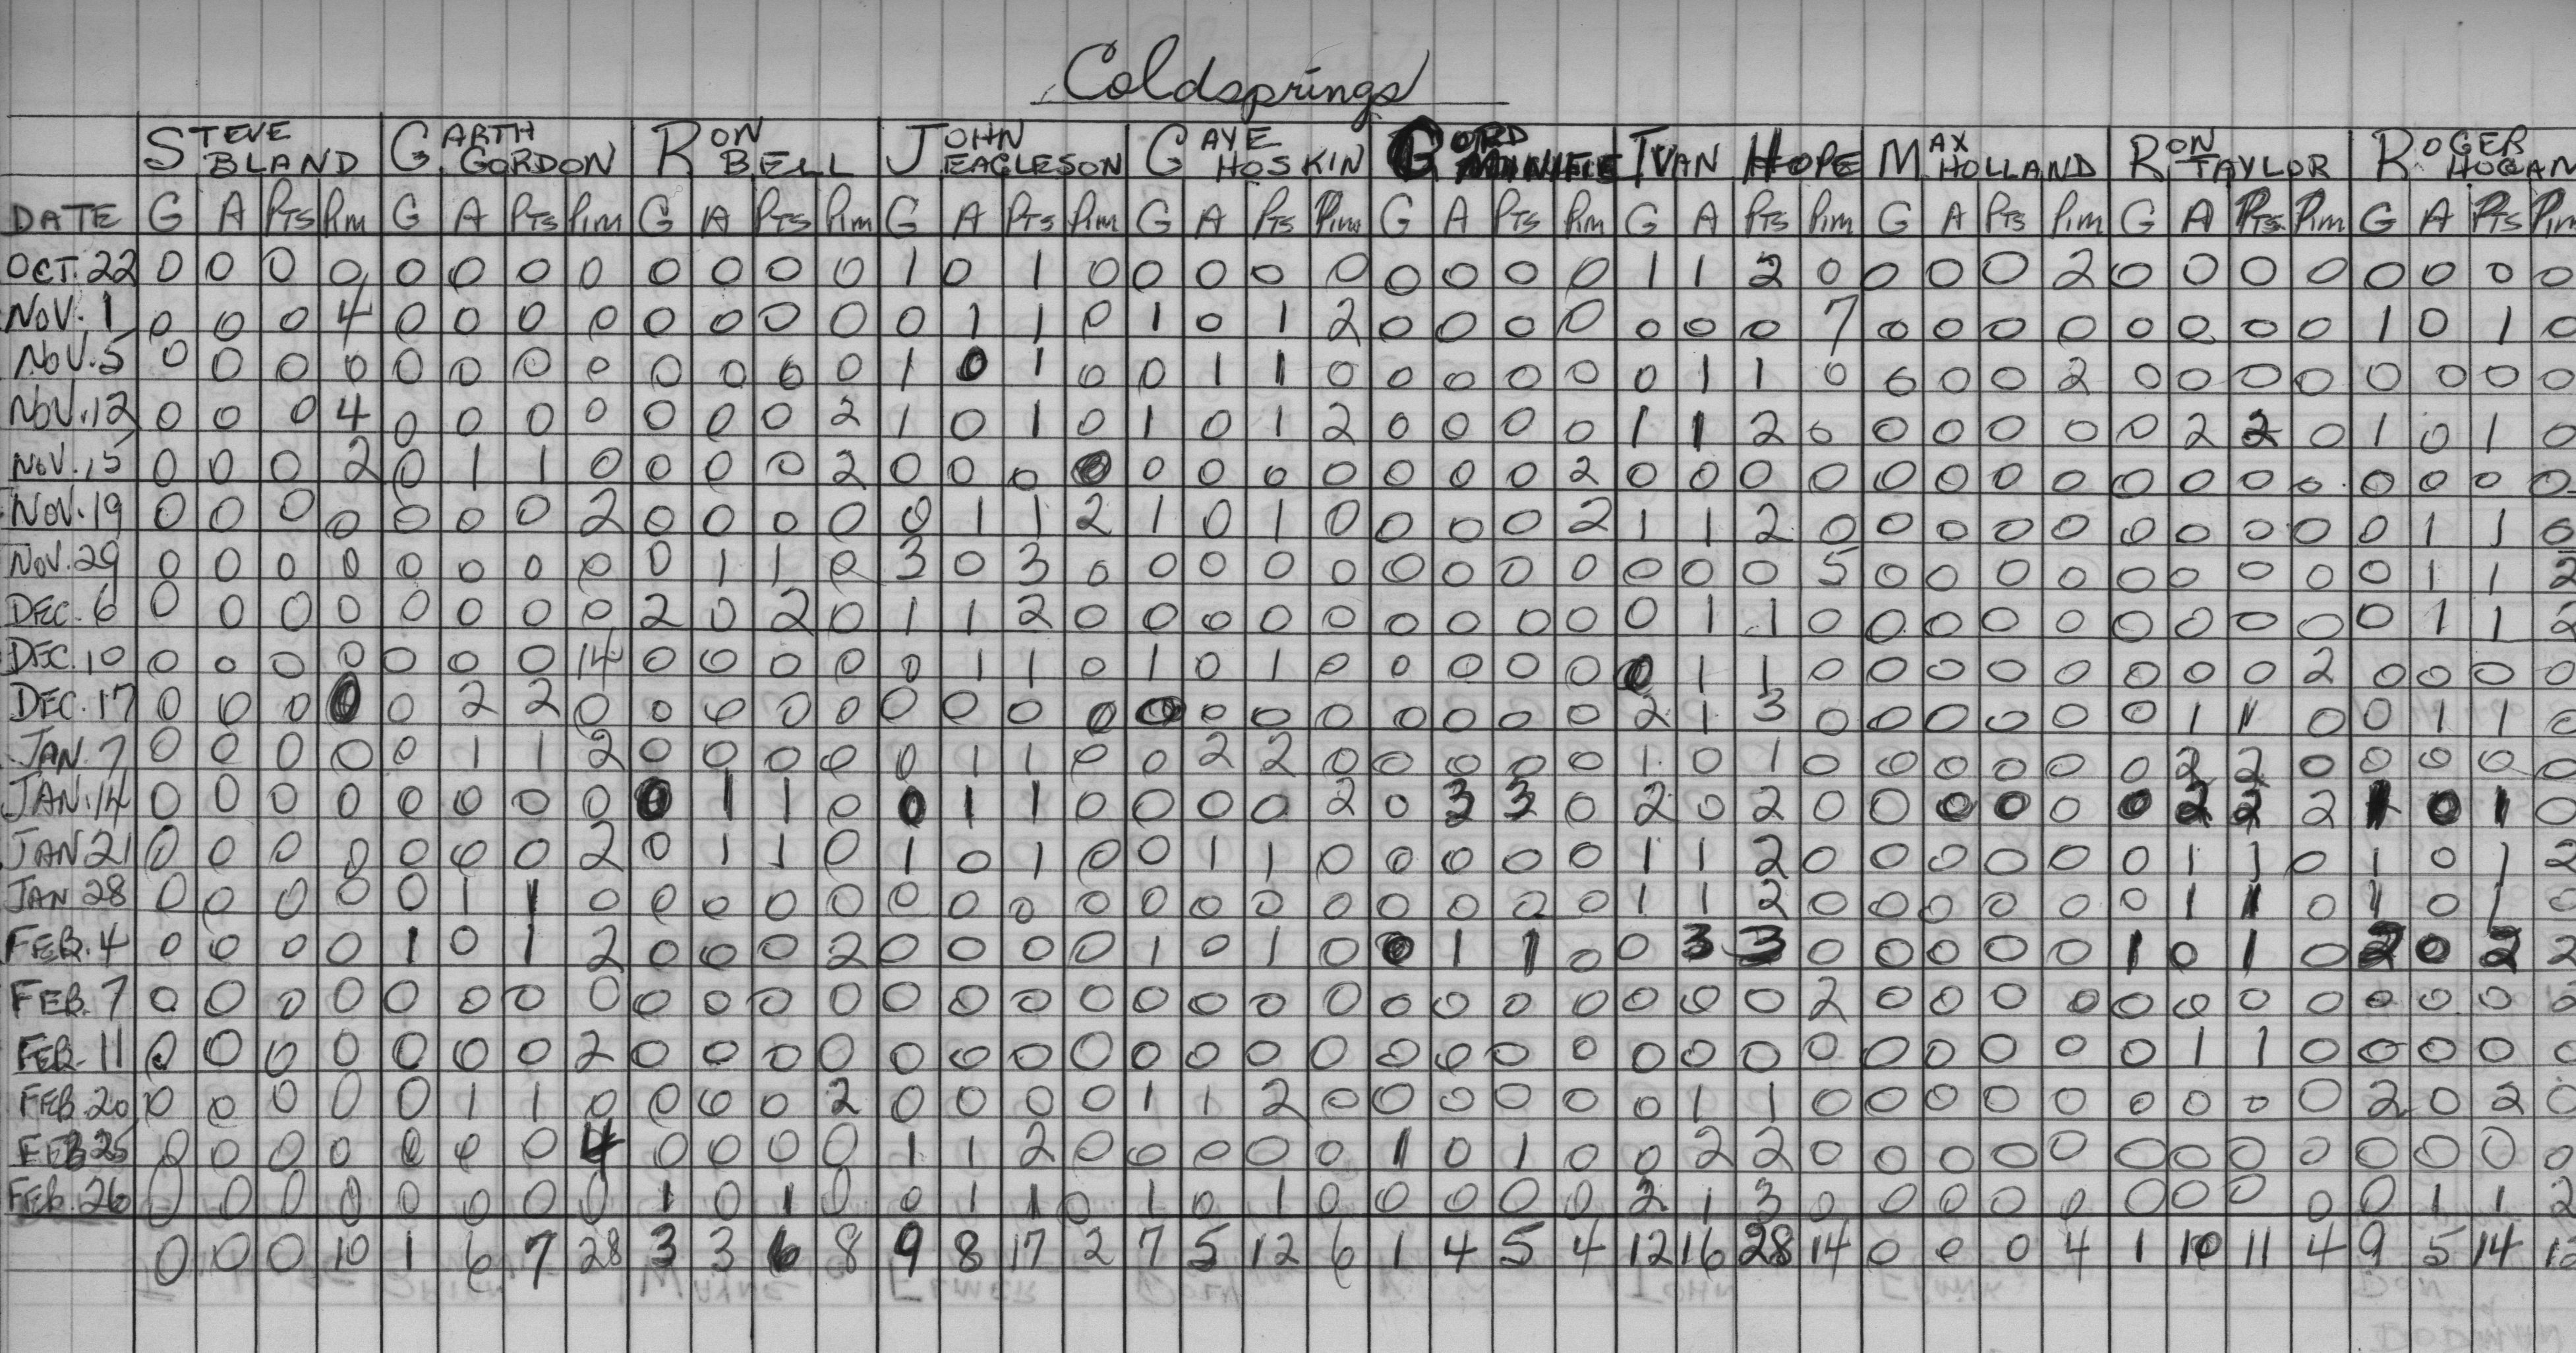 Coldsprings
STEVE BLAND GARTH GORDON RON BELL JOHN EAGLESON GAYE HOSKIN GORD IVAN HOPE MAX HOLLAND RON TAYLOR ROGER HOGAN
DATE G A PTS Pim G A PTS Pim G A PTS Pim G A PTS Pim G A PTS Pim G A PTS Pim G A PTS Pim G A PTS Pim G A PTS Pim G A PTS Pim
OCT. 22 0 0 0 0 0 0 0 0 0 0 0 0 1 0 1 0 0 0 0 0 0 0 0 0 1 1 2 0 0 0 0 2 0 0 0 0 0 0 0 0
NOV. 1 0 0 0 4 0 0 0 0 0 0 0 0 0 1 1 0 1 0 1 2 0 0 0 0 0 0 0 7 0 0 0 0 0 0 0 0 1 0 1 0
NOV. 5 0 0 0 0 0 0 0 0 0 0 0 0 1 0 1 0 0 1 1 0 0 0 0 0 0 1 1 0 0 0 0 2 0 0 0 0 0 0 0 0
NOV. 12 0 0 0 4 0 0 0 0 0 0 0 2 1 0 1 0 1 0 1 2 0 0 0 0 1 1 2 0 0 0 0 0 0 2 2 0 1 0 1 0
NOV. 15 0 0 0 2 0 1 1 0 0 0 0 2 0 0 0 0 0 0 0 0 0 0 0 2 0 0 0 0 0 0 0 0 0 0 0 0 0 0 0 0
NOV. 19 0 0 0 0 0 0 0 2 0 0 0 0 0 1 1 2 1 0 1 0 0 0 0 2 1 1 2 0 0 0 0 0 0 0 0 0 0 1 1 0
NOV. 29 0 0 0 0 0 0 0 0 0 1 1 0 3 0 3 0 0 0 0 0 0 0 0 0 0 0 0 5 0 0 0 0 0 0 0 0 0 1 1 2
DEC. 6 0 0 0 0 0 0 0 0 2 0 2 0 1 1 2 0 0 0 0 0 0 0 0 0 0 1 1 0 0 0 0 0 0 0 0 0 0 1 1 2
DEC. 10 0 0 0 0 0 0 0 14 0 0 0 0 0 1 1 0 1 0 1 0 0 0 0 0 0 1 1 0 0 0 0 0 0 0 0 2 0 0 0 0
DEC. 17 0 0 0 0 0 2 2 0 0 0 0 0 0 0 0 0 0 0 0 0 0 0 0 0 2 1 3 0 0 0 0 0 0 1 1 0 0 1 1 0
JAN. 7 0 0 0 0 0 1 1 2 0 0 0 0 0 1 1 0 0 2 2 0 0 0 0 0 1 0 1 0 0 0 0 0 0 2 2 0 0 0 0 0
JAN. 14 0 0 0 0 0 0 0 0 0 1 1 0 0 1 1 0 0 0 0 2 0 3 3 0 2 0 2 0 0 0 0 0 0 2 2 2 1 0 1 0
JAN 21 0 0 0 0 0 0 0 2 0 1 1 0 1 0 1 0 0 1 1 0 0 0 0 0 1 1 2 0 0 0 0 0 0 1 1 0 1 0 1 2
JAN 28 0 0 0 0 0 1 1 0 0 0 0 0 0 0 0 0 0 0 0 0 0 0 0 0 1 1 2 0 0 0 0 0 0 1 1 0 1 0 1 0
FEB. 4 0 0 0 0 1 0 1 2 0 0 0 2 0 0 0 0 1 0 1 0 0 1 1 0 0 3 3 0 0 0 0 0 1 0 1 0 2 0 2 2
FEB. 7 0 0 0 0 0 0 0 0 0 0 0 0 0 0 0 0 0 0 0 0 0 0 0 0 0 0 0 2 0 0 0 0 0 0 0 0 0 0 0
FEB. 11 0 0 0 0 0 0 0 2 0 0 0 0 0 0 0 0 0 0 0 0 0 0 0 0 0 0 0 0 0 0 0 0 0 1 1 0 0 0 0 0
FEB. 20 0 0 0 0 0 1 1 0 0 0 0 2 0 0 0 0 1 1 2 0 0 0 0 0 0 1 1 0 0 0 0 0 0 0 0 0 2 0 2 0
FEB 25 0 0 0 0 0 0 0 4 0 0 0 0 1 1 2 0 0 0 0 0 1 0 1 0 0 2 2 0 0 0 0 0 0 0 0 0 0 0 0 0
FEB. 26 0 0 0 0 0 0 0 0 1 0 1 0 0 1 1 0 1 0 1 0 0 0 0 0 2 1 3 0 0 0 0 0 0 0 0 0 0 1 1 2
0 0 0 10 1 6 7 28 3 3 6 8 9 8 17 2 7 5 12 6 1 4 5 4 12 16 28 14 0 0 0 4 1 10 11 4 9 5 14